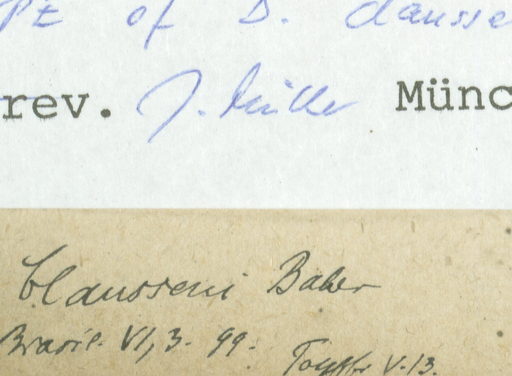 of D. clausse
rev. J. Müller Münc
Claussenii Baker
Brasil. VI, 3. 99.
V. 13.